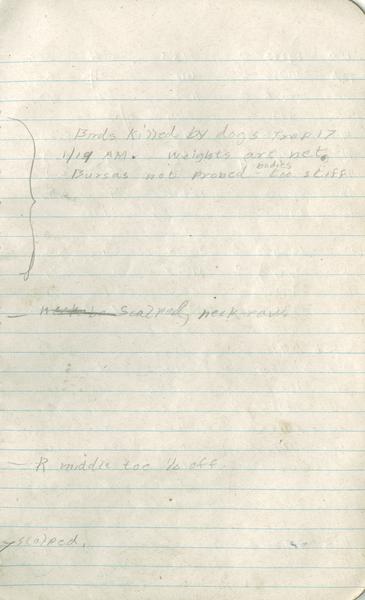 Birds killed by dogs Trap 17
1/19 AM. Weights are net.
Bursas not probed bodies too stiff
— scalped, neck raw
— R middle toe ½ off.
scalped.